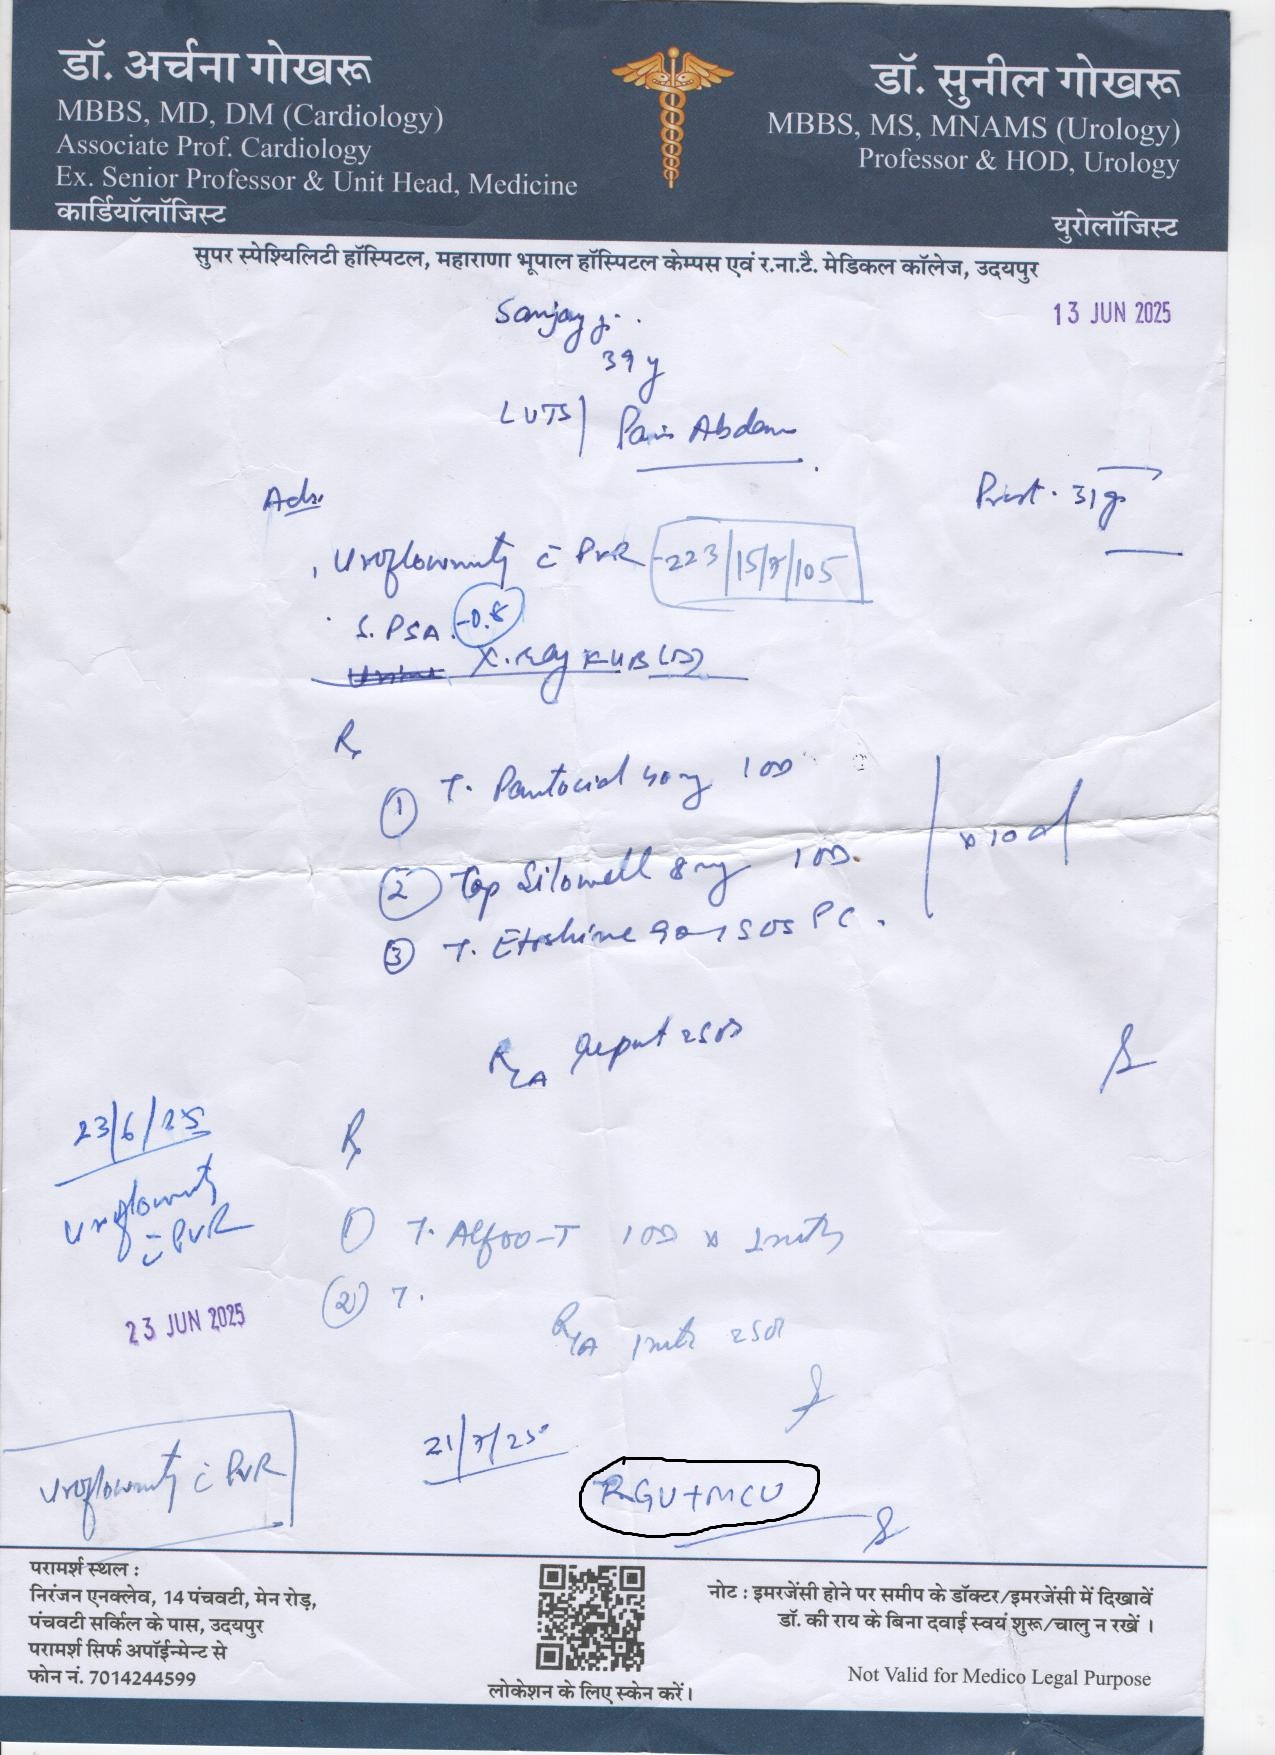 डॉ. अर्चना गोखरू
MBBS, MD, DM (Cardiology)
Associate Prof. Cardiology
Ex. Senior Professor & Unit Head, Medicine
कार्डियॉलॉजिस्ट
डॉ. सुनील गोखरू
MBBS, MS, MNAMS (Urology)
Professor & HOD, Urology
युरोलॉजिस्ट
सुपर स्पेश्यिलिटी हॉस्पिटल, महाराणा भूपाल हॉस्पिटल केम्पस एवं र.ना.टै. मेडिकल कॉलेज, उदयपुर
13 JUN 2025
Sanjay ji
39 y
LUTS | Pain Abdomen
Prost. 31g
Adv.
Uroflowmetry c̄ PVR -223/15/7/105
S. PSA -0.8
X. Ray KUB (D)
Rx
① T. Pantocid 40mg 1 OD
② Cap Silowell 8mg 1 OD
x 10 d
③ T. Etoshine 90mg SOS PC.
R/A
23/6/25
Uroflowmetry
c̄ PVR
23 JUN 2025
Rx
① T. Alfoo-T 1 OD x 1 mth
② T.
R/A 1 mth
Uroflowmetry c̄ PVR
21/7/25
RGU + MCU
परामर्श स्थल :
निरंजन एनक्लेव, 14 पंचवटी, मेन रोड़,
पंचवटी सर्किल के पास, उदयपुर
परामर्श सिर्फ अपॉईन्मेन्ट से
फोन नं. 7014244599
लोकेशन के लिए स्केन करें।
नोट : इमरजेंसी होने पर समीप के डॉक्टर/इमरजेंसी में दिखावें
डॉ. की राय के बिना दवाई स्वयं शुरू/चालु न रखें ।
Not Valid for Medico Legal Purpose